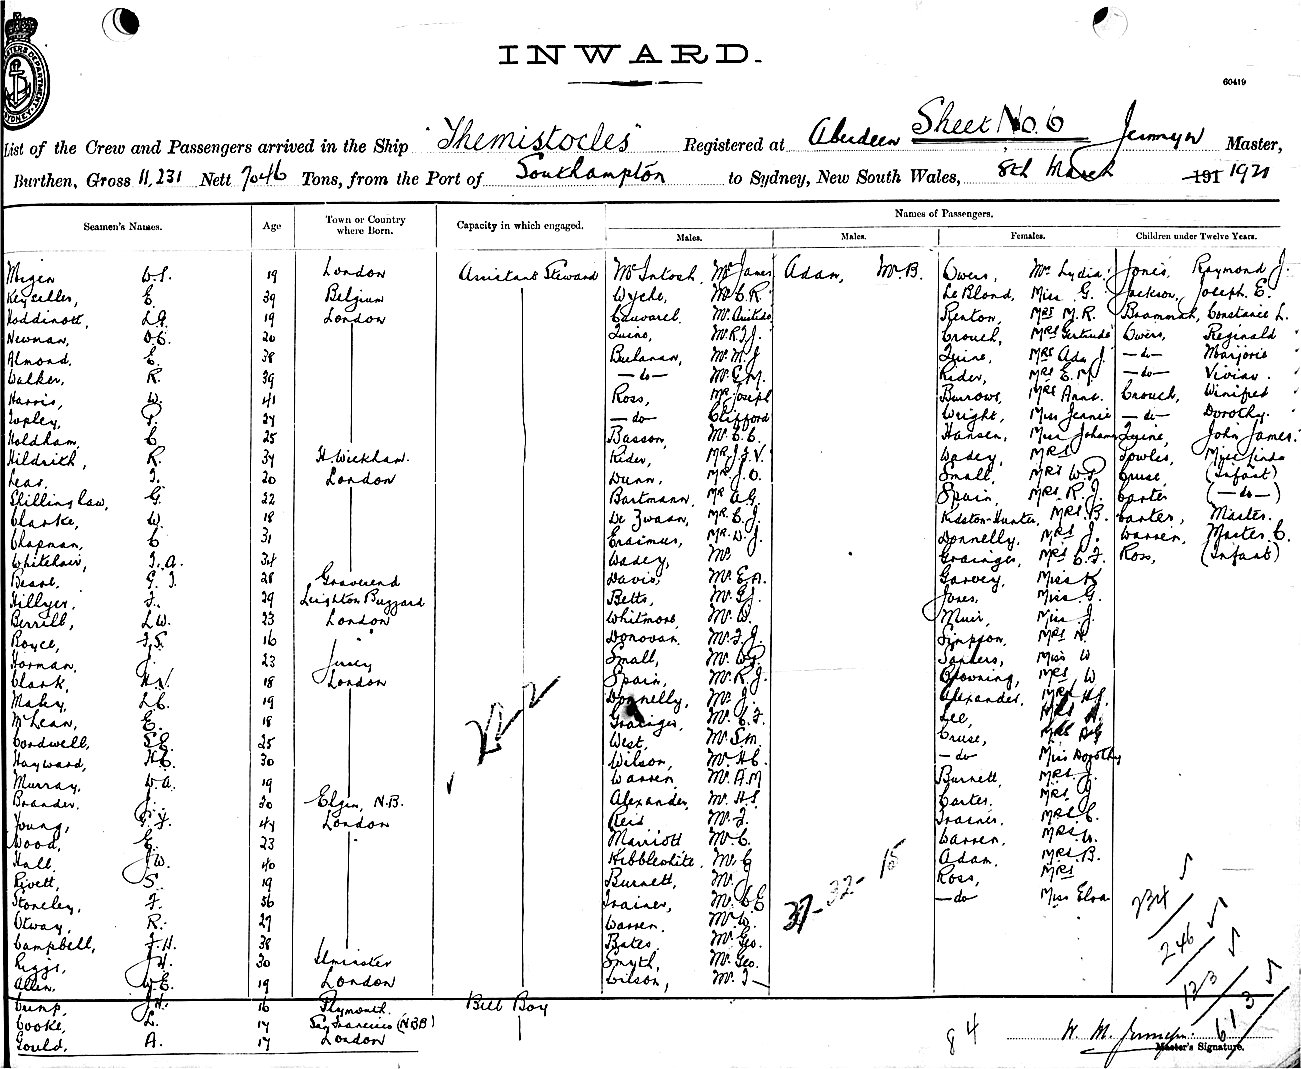 INWARD.
60419
Sheet No. 6
List of the Crew and Passengers arrived in the Ship "Themistocles" Registered at Aberdeen Jermyn Master,
Burthen, Gross 11,231 Nett 7046 Tons, from the Port of Southampton to Sydney, New South Wales, 8th March 191 1921
Names of Passengers.
Seamen's Names. Age Town or Country where Born. Capacity in which engaged. Males. Males. Females. Children under Twelve Years.
19 London Assistant Steward McIntosh, Mr James Adam, Mr B. Owers, Mrs Lydia. Jones, Raymond J.
E. 39 Belgium Wyche, Mr C.R. Le Blond, Miss G. Jackson, Joseph E.
Hoddinott, L.G. 19 London Renton, Mrs M.R. Constance L.
Newman, 20 Mr R.J.J. Crouch, Mrs Gertrude Owers, Reginald
Almond, E. 38 Mr M.J. Mrs Ada J. —do— Marjorie
Walker, R. 39 —do— Mr E.M. Rider, Mrs E.M. —do— Vivian.
Harris, W. 41 Ross, Mr Joseph Burrows, Mrs Anne. Crouch, Winifred
Topley, P. 27 —do— Clifford Wright, Miss Jennie —do— Dorothy.
Holdham, C. 25 Basson, Mr C.C. Hansen, Miss John James.
Hildrith, R. 34 H. Wickham. Rider, Mr J.F.V. Wadey, Mrs
Lear, 20 London Dunn, Mr J.O. Small, Mrs W.P. Cruse, (Infant)
Shillinglaw, G. 22 Bartmann, Mr A.G. Spain, Mrs R.J. Carter (—do—)
Clarke, W. 18 De Zwaan, Mr C.J. Kidston-Hunter, Mrs B. Carter, Master.
Chapman, C. 31 Erasmus, Mr W.J. Donnelly, Mrs J. Warren, Master C.
Whitehair, J.A. 34 Wadey, Mr Grainger, Mrs C.F. Ross, (Infant)
28 Gravesend Davis, Mr E.A. Garvey, Miss K
Hillyer, F. 29 Leighton Buzzard Betts, Mr G.J. Jones, Miss G.
Berrill, L.W. 23 London Whitmore, Mr W. Muir, Miss J.
Royce, F.S. 16 " Donovan, Mr F.J. Simpson, Mrs N.
Horman, J. 23 Jersey Small, Mr W.P. Sanders, Miss W
Clark, H.V. 18 London Spain, Mr R.J. Mrs W
L.C. 19 Donnelly, Mr J. Alexander, Mrs H.S.
McLean, E. 18 Grainger, Mr C.F. Lee, Mrs A.
Cordwell, S.C. 25 West, Mr S.M. Cruse,
Hayward, H.C. 30 Wilson, Mr H.C. —do Miss Dorothy
Murray, W.A. 19 Warren, Mr A.M Burnett, Mrs J.
Brander, J. 30 Elgin, N.B. Alexander, Mr H.S. Carter, Mrs J
Young, 44 London Reid, Mr J. Trainer, Mrs C.
Wood, E. 23 Marriott Mr C. Warren, Mrs W.
Hall, J.W. 40 Kibblewhite, Mr G Adam, Mrs B.
Rivett, S. 19 Burnett, Mr J. Ross, Mrs
Stoneley, F. 56 Trainer, Mr C.E —do Miss Elva
Otway, R. 27 Warren, Mr W.
Campbell, J.H. 38 Bates, Mr Geo.
Riggs, J.H. 30 Ilminster Smyth, Mr Geo.
Allen, W.E. 19 London Wilson, Mr T—
222
37-32-15
234
246
123
613
Crump, J.H. 16 Plymouth. Bell Boy
Cooke, L. 17 San Francisco (NBB)
Gould, A. 17 London
84
W. M. Jermyn.
Master's Signature.